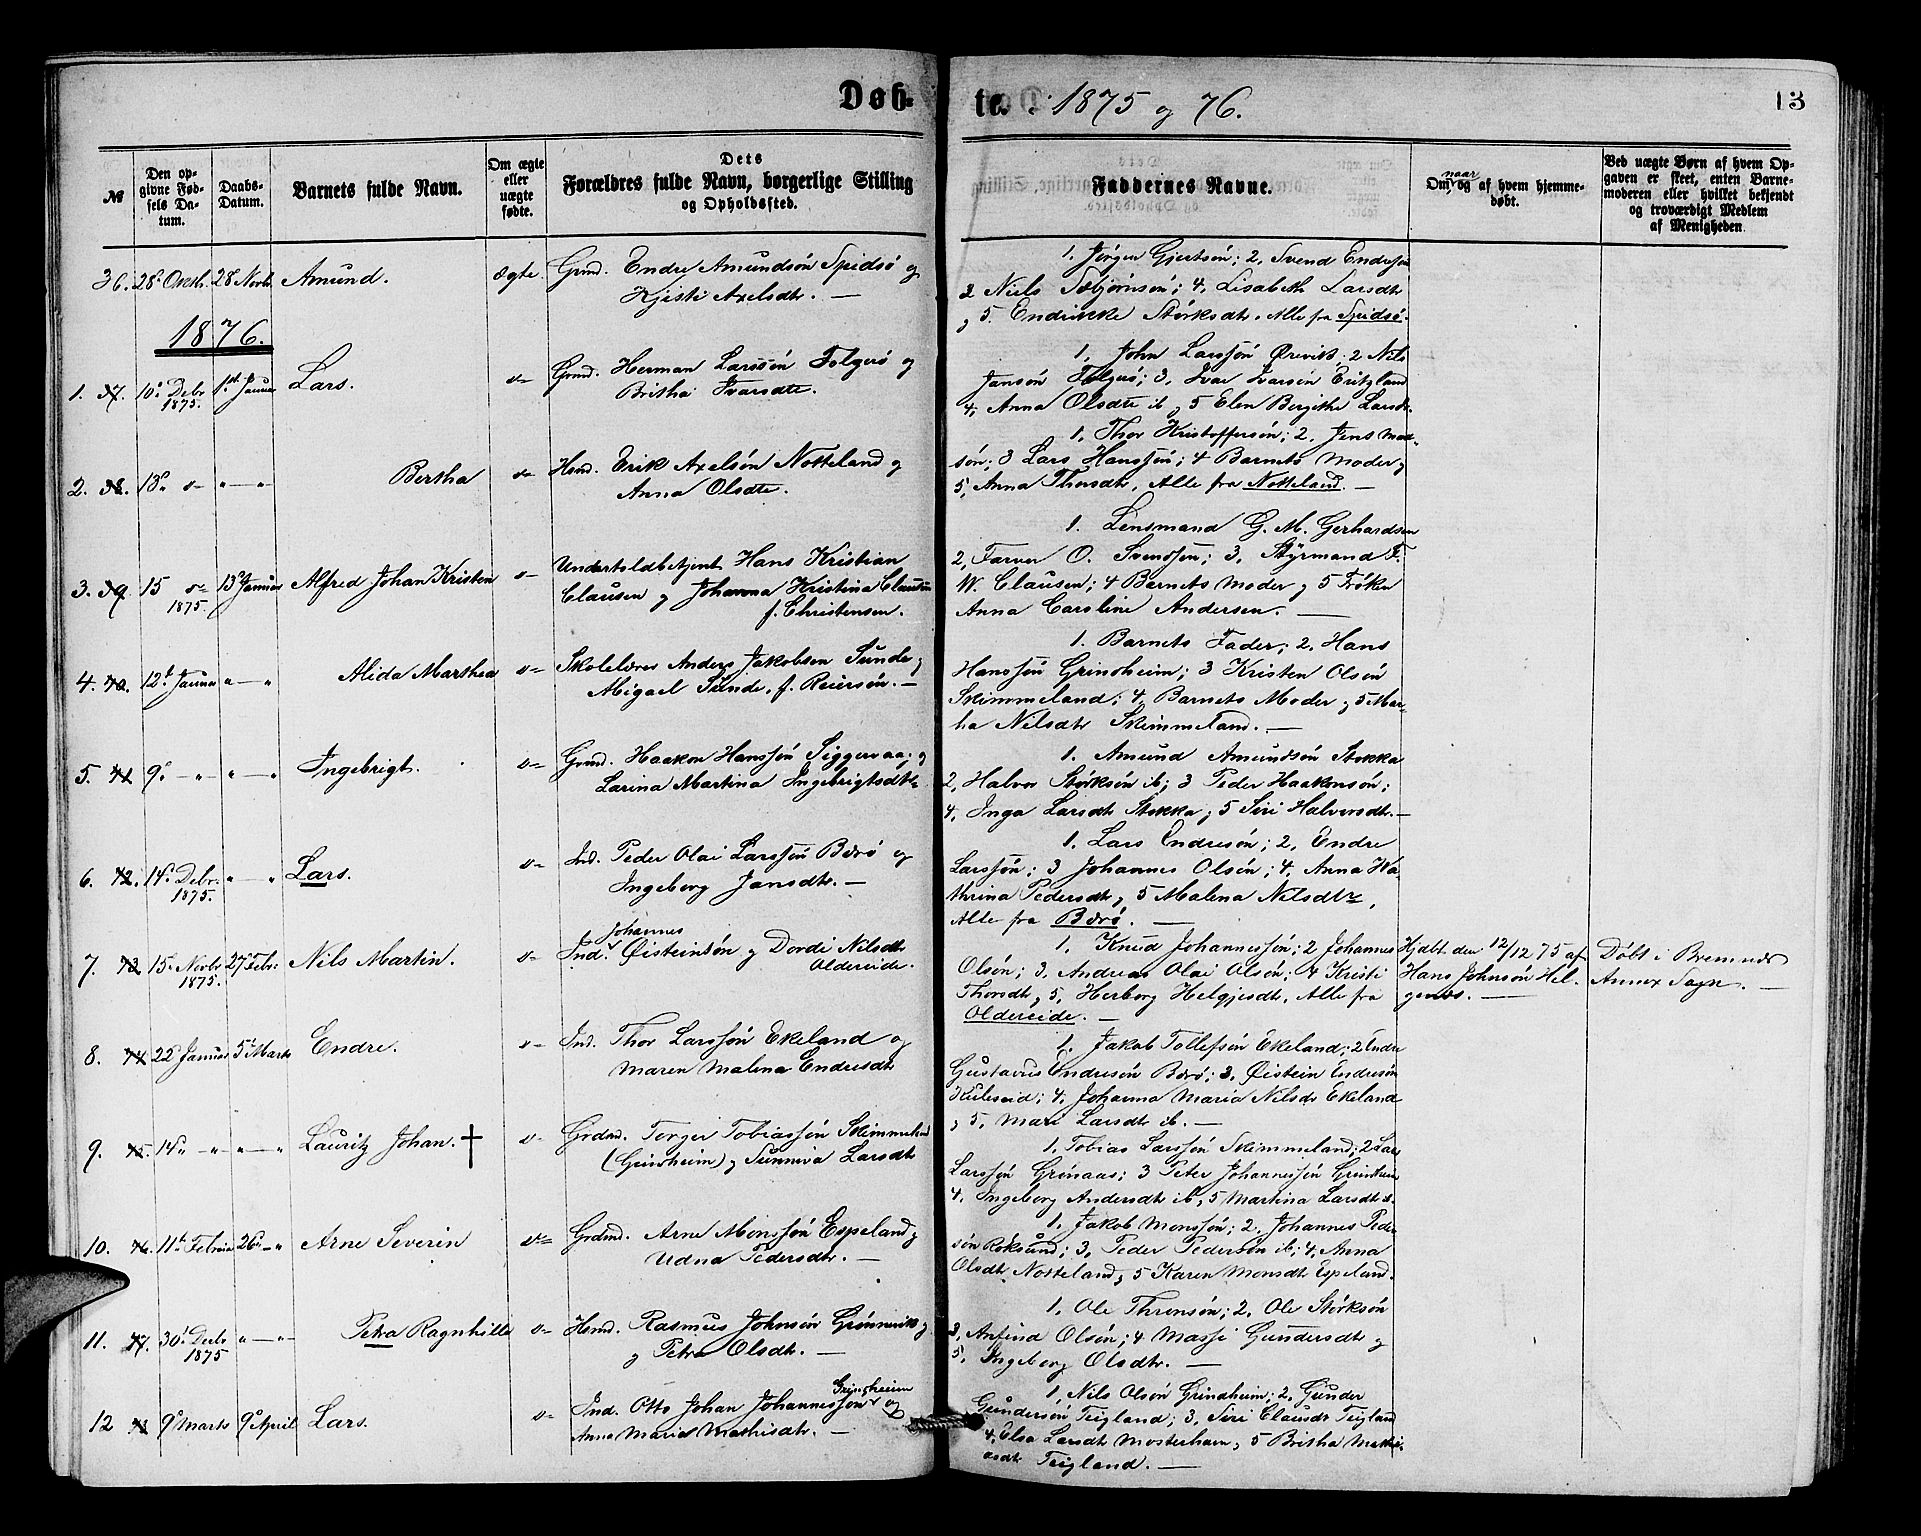 Døb-
te. 1875 og 76.
13
№
Den op-
givne Fød-
sels Da-
tum.
Daabs-
Datum.
Barnets fulde Navn.
Om ægte
eller
uægte
fødte.
Dets
Forældres fulde Navn, borgerlige Stilling
og Opholdssted.
Faddernes Navne.
naar
Om, og af hvem hjemme-
døbt.
Ved uægte Børn af hvem Op-
gaven er skeet, enten Barne-
moderen eller hvilket bekjendt
og troværdigt Medlem
af Menigheden.
36. 28 Octb. 28 Novb. Amund. ægte. Grmd. Endre Amundsøn Spidsø og
Kjisti Axelsdtr. —
1. Jørgen Gjertsøn; 2, Svend Endresøn
3 Niels Sæbjørnsøn; 4, Lisabeth Larsdtr
og 5. Endrikke Størksdtr. Alle fra Spidsø.
1876.
1. 37. 10 Debr 1875. 1st Januar Lars. Grmd. Herman Larssøn Folgerø og
Britha Ivarsdtr.
1, John Larssøn Ørevik; 2 Nils
Jansøn Folgerø; 3, Ivar Ivarsøn Eritzland
4, Anna Olsdtr ib og 5 Elen Bergithe Larsdtr.
2. 38. 13 Bertha Hsmd. Erik Axelsøn Notteland og
Anna Olsdtr.
1, Thor Kristoffersøn; 2, Jens Mad-
søn; 3 Lars Hanssøn; 4 Barnets Moder og
5, Anna Thorsdtr, Alle fra Notteland. —
3. 39. 15 1875. 13 Januar Alfred Johan Kristen Undertoldbetjent Hans Kristian
Clausen og Johanna Kristina Clausen
f. Christensen.
1. Lensmand G. M. Gerhardsen
2, Farver O. Svendsen; 3, Styrmand F.
W. Clausen; 4 Barnets Moder og 5 Frøken
Anna Caroline Andersen. —
4. 40. 12 Januar Alida Marthea Skolelærer Anders Jakobsen Sunde og
Abigael Sunde, f. Reiersøn. —
1. Barnets Fader; 2, Hans
Hanssøn Grindheim; 3 Kristen Olsøn
Skimmeland; 4 Barnets Moder og 5 Mar-
ha Nilsdtr Skimmeland. —
5. 41 9 Ingebrigt. Grmd. Haakon Hanssøn Siggervaag og
Larina Martina Ingebrigtsdtr.
1. Amund Amundsøn Stokka
2, Halvor Størksøn ib; 3 Peder Haakonsøn;
4, Inga Larsdtr Stokka og 5 Siri Halvorsdtr. —
6. 42. 14 Debr. 1875. Lars. Ind. Peder Olai Larssøn Børø og
Ingeborg Jansdtr. —
1. Lars Endresøn; 2, Endre
Larssøn; 3 Johannes Olsøn; 4, Anna Ka-
thrina Pedersdtr og 5 Malena Nilsdtr,
Alle fra Børø. —
7. 43. 15 Novbr 1875. 27 Febr. Nils Martin. Johannes
Ind. Øisteinsøn og Dordi Nilsdtr
Oldereide.
1. Knud Johannessøn; 2 Johannes
Olsøn; 3, Andreas Olai Olsøn; 4 Kristi
Thorsdtr og 5, Herborg Helgjesdtr. Alle fra
Oldereide. —
Hjdbt. den 12/12 75 af
Hans Johnsøn Hel-
genæs. —
Døbt i Bremnes
Annex Sogn. —
8. 44. 22 Januar 5 Marts Endre. Ind. Thor Larssøn Ekeland og
Maren Malena Endresdtr
1. Jakob Tollefsøn Ekeland; 2 Endre
Gustavus Endresøn Børø; 3, Øistein Endresøn
Kuleseid; 4, Johanna Maria Nilsdr Ekeland
og 5, Mari Larsdtr ib. —
9. 45. 14 Lauritz Johan. † Grdmd. Torger Tobiassøn Skimmeland
(Grindheim) og Sunniva Larsdtr
1. Tobias Larssøn Skimmeland; 2 Lars
Larssøn Grønaas; 3 Peter Johannessøn Grindheim
4. Ingeborg Andersdtr ib, 5 Martina Larsdtr ib.
10. 46. 11 Februar 26 Arne Severin Grdmd. Arne Monssøn Espeland og
Udna Pedersdtr. —
1, Jakob Monssøn; 2, Johannes Peder-
søn Røksund; 3, Peder Pedersøn ib; 4, Anna
Olsdtr Notteland og 5 Karen Monsdtr Espeland.
11. 47. 30 Decbr 1875 Petra Ragnhilla Hsmd. Rasmus Johnsøn Grønnevik og
og Petra Olsdtr. —
1. Ole Thronsøn; 2, Ole Størksøn
3, Anfind Olsøn; 4 Massi Gundersdtr og
5, Ingeborg Olsdtr. —
12 48 9 Marts 9 April Lars. Grindheim
Ind. Otto Johan Johannessøn og
Anna Maria Mathisdtr. —
1, Nils Olsøn Grindheim; 2, Gunder
Gundersøn Teigland; 3, Siri Clausdtr Teigland
4, Elsa Larsdtr Mosterhavn og 5 Britha Mathi-
asdtr Teigland. —